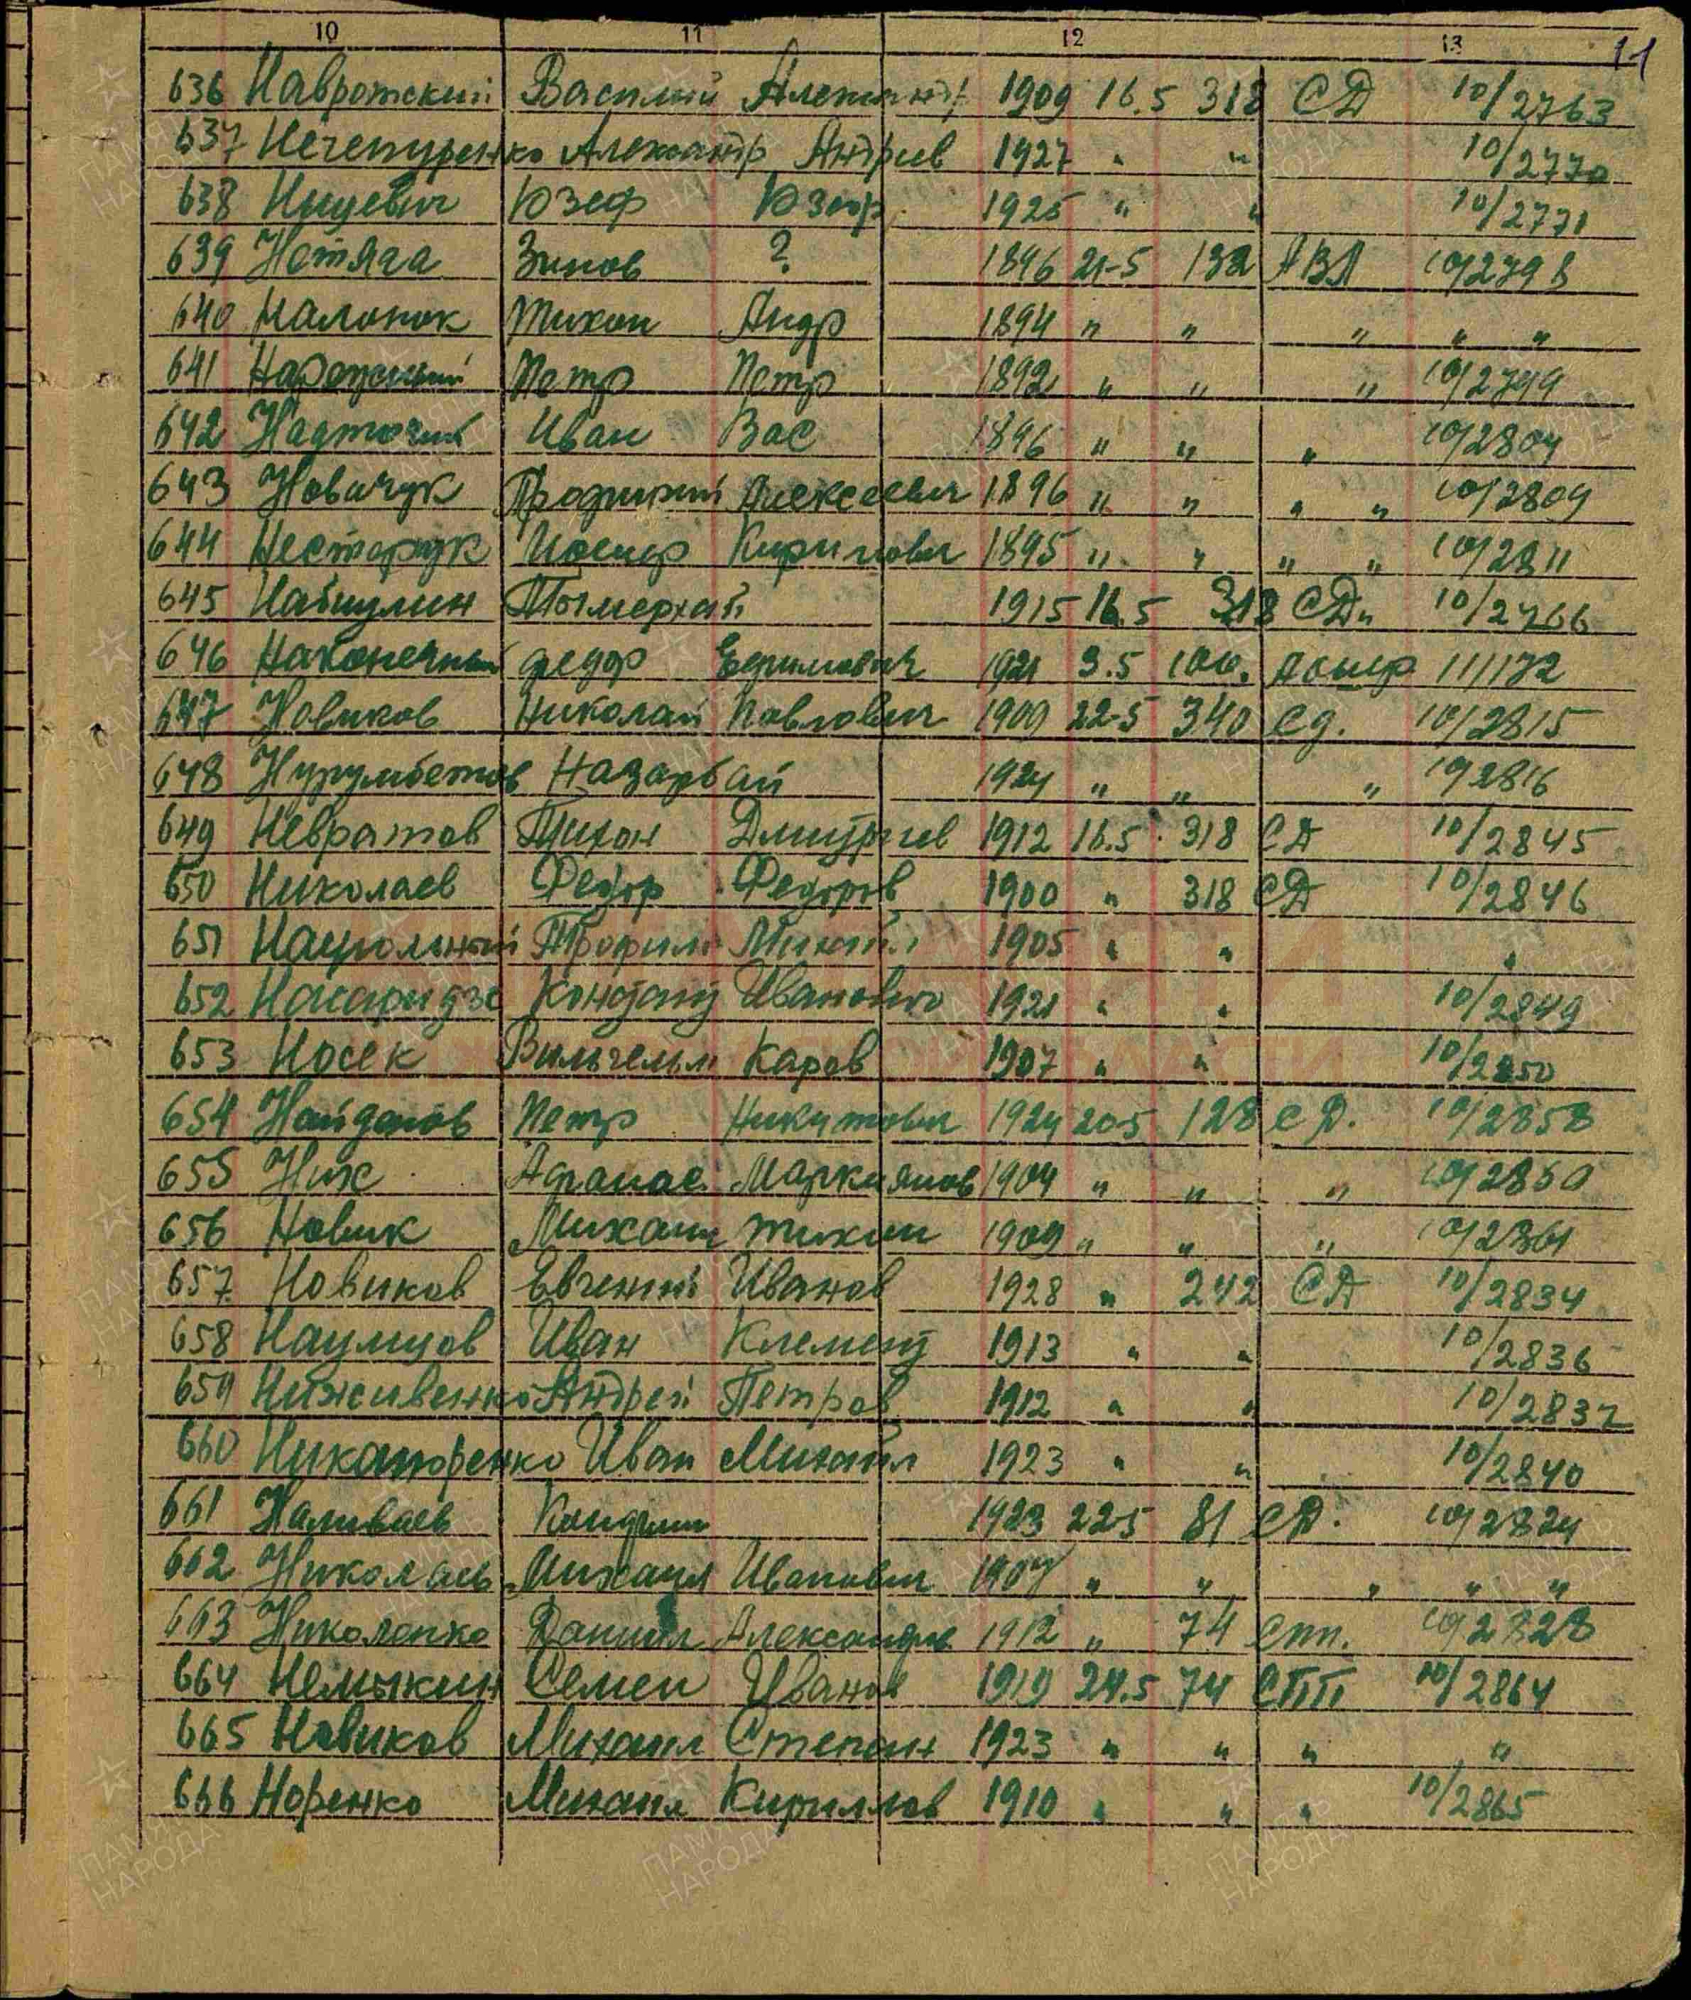 10 11 12 13 11
636 Навротский Василий Александ 1909 16.5 318 СД 10/2763
637 Нечепуренко Александр Андреев 1927 " " 10/2770
638 Ницевич Юзеф Юзеф 1925 " " 10/2771
639 Нетяга Зинов ? 1896 21-5 132 АВЛ 10/2798
640 Налонок Тихон Андр 1894 " " " " "
641 Нарожный Петр Петр 1892 " " " 10/2799
642 Надточий Иван Вас 1896 " " " 10/2804
643 Новачук Алексеевич 1896 " " " " 10/2809
644 Нестерук Иосиф Кирилович 1895 " " " " 10/2811
645 Набиулин Тымерхай 1915 16.5 318 СД " 10/2766
646 Наконечный федор Ефимович 1921 3.5 100. 11/172
647 Новиков Николай Павлович 1909 22-5 340 сд. 10/2815
648 Нурумбетов Назарбай 1924 " " " 10/2816
649 Невратов Тихон Дмитриев 1912 16.5 318 СД 10/2845
650 Николаев Федор Федоров 1900 " 318 СД 10/2846
651 Нагольный Трофим Михайл 1905 " " "
652 Насаридзе Констант Иванович 1921 " " 10/2849
653 Носек Вильгельм Каров 1907 " " 10/2850
654 Найданов Петр Никитович 1924 20-5 128 с Д. 10/2858
655 Ниж Афанас Маркиянов 1904 " " " 10/2860
656 Новик Михаил Тихон 1909 " " " 10/2861
657 Новиков Евгений Иванов 1928 " 242 СД 10/2834
658 Наумцов Иван Клемент 1913 " " 10/2836
659 Наживенко Андрей Петров 1912 " " 10/2837
660 Никаноренко Иван Михайл 1923 " " 10/2840
661 Наливаев 1923 22-5 81 СД. 10/2824
662 Николаев Михаил Иванович 1907 " " " " "
663 Николенко Даниил Александров 1912 " 74 Спп. 10/2828
664 Немыкин Семен Иванов 1919 24.5 74 СПП 10/2864
665 Новиков Михаил Степан 1923 " " " "
666 Норенко Михаил Кириллов 1910 " " " 10/2865